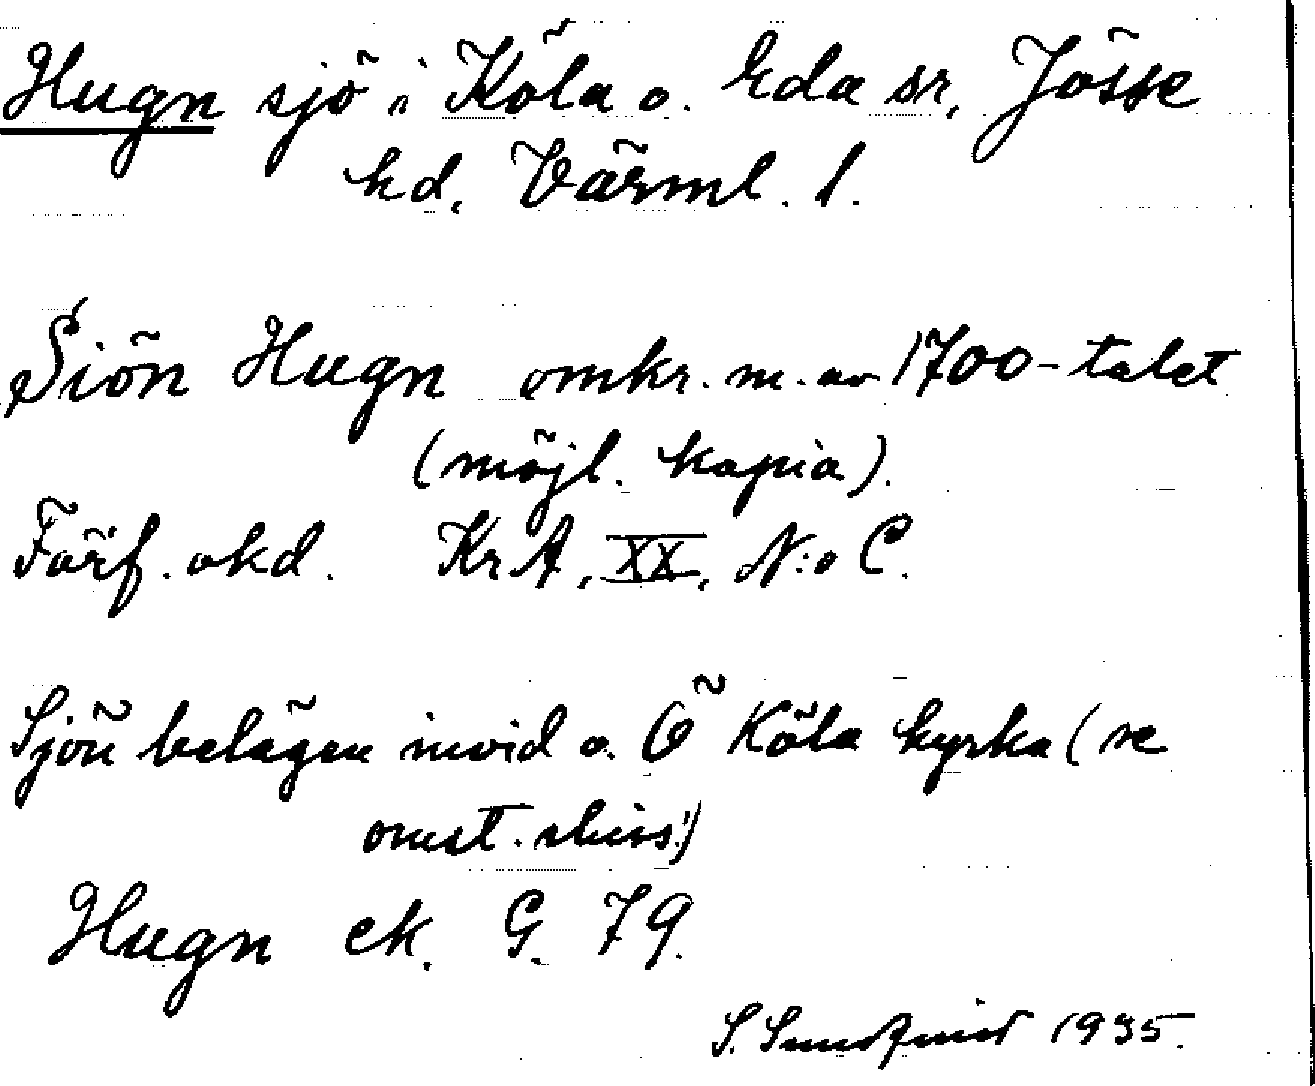 Hugn sjö i Köla o. Eda sr, Jösse
hd, Värml. l.
Siön Hugn omkr. m. av 1700-talet
(möjl. kopia).
Förf. okd. KrA, XX, N:o C.
Sjön belägen invid o. Ö Köla kyrka (se
omst. skiss!)
Hugn ek. G. 79.
S. Sundqvist 1935.